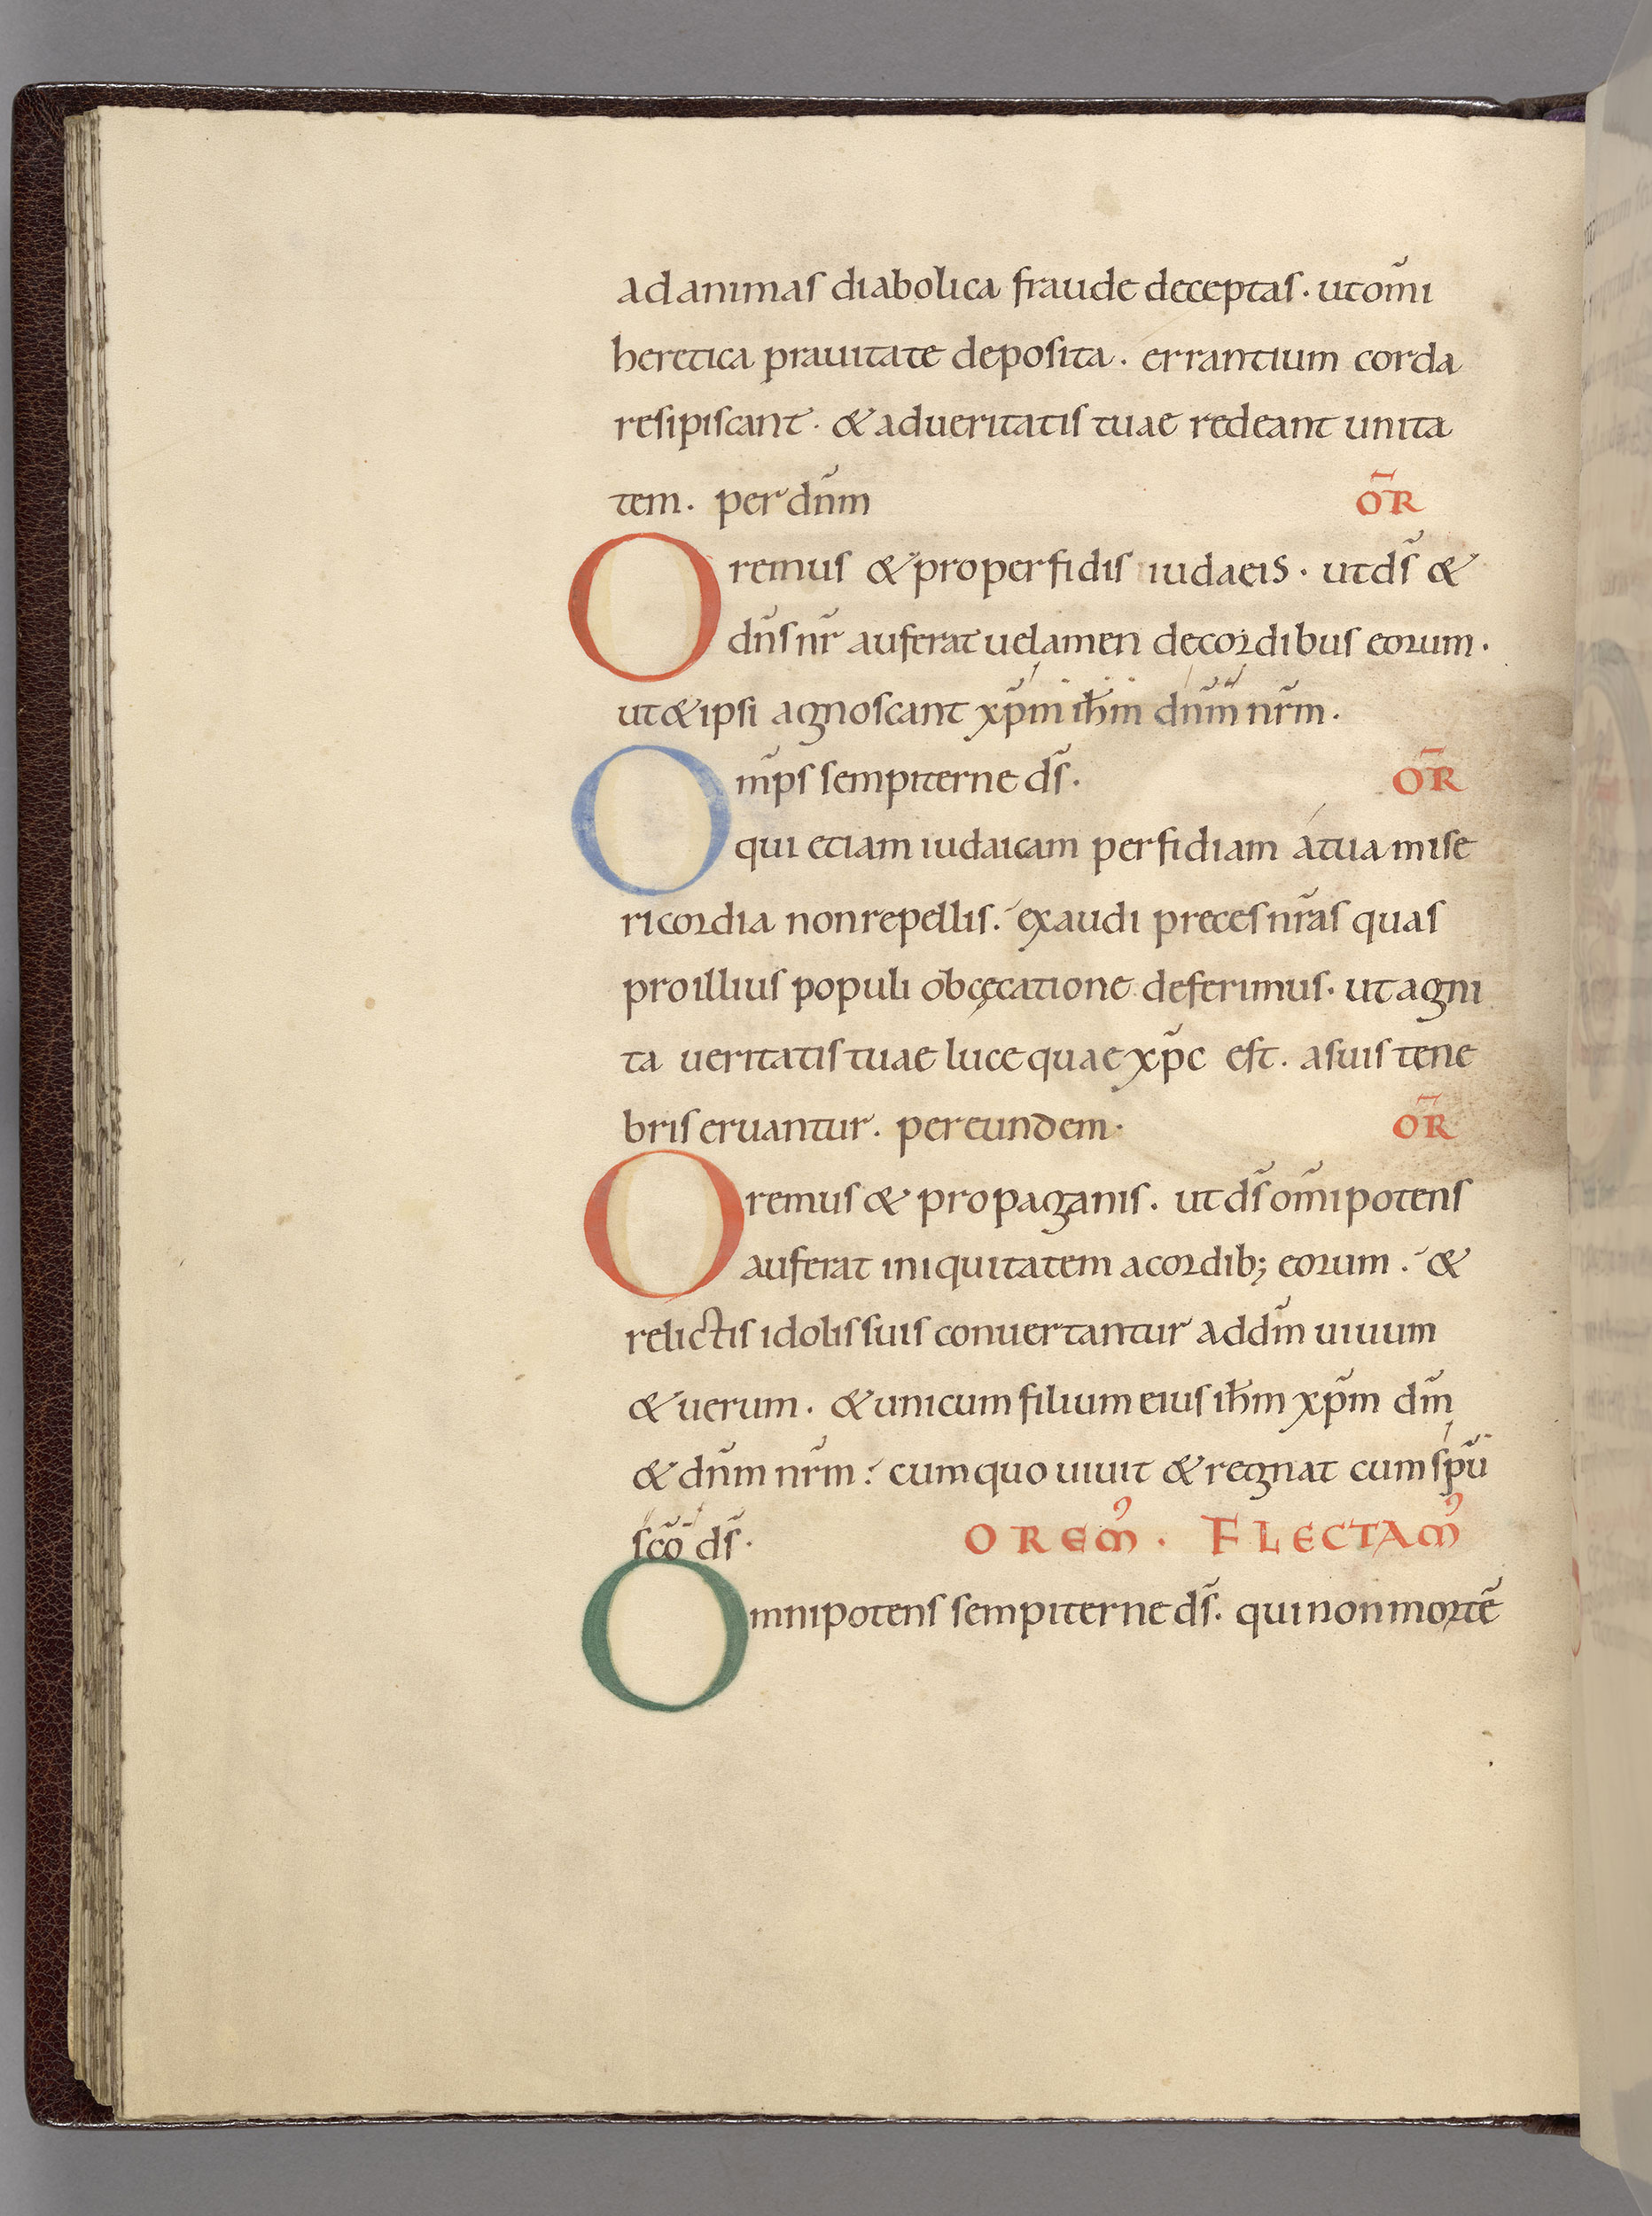 ad animas diabolica fraude deceptas · ut om̃i
heretica prauitate deposita · errantium corda
resipiscant · & ad ueritatis tuae redeant unita
tem · per dñm OR̃
Oremus & pro perfidis iudaeis · ut ds̃ &
dñs nr̃ auferat uelamen de cordibus eorum ·
ut & ipsi agnoscant xp̃m ih̃m dñm nr̃m ·
Om̃ps sempiterne ds̃ · OR̃
qui etiam iudaicam perfidiam á tua mise
ricordia non repellis · exaudi preces nr̃as quas
pro illius populi obcęcatione deferimus · ut agni
ta ueritatis tuae luce quae xp̃c est · a suis tene
bris eruantur · per eundem · OR̃
Oremus & pro paganis · ut ds̃ om̃ipotens
auferat iniquitatem a cordib; eorum · &
relictis idolis suis conuertantur ad dm̃ uiuum
& uerum · & unicum filium eius ih̃m xp̃m dm̃
& dñm nr̃m · cum quo uiuit & regnat cum sp̃ū
sc̃o ds̃ · OREM⁹ · FLECTAM⁹
Omnipotens sempiterne ds̃ · qui non mortē